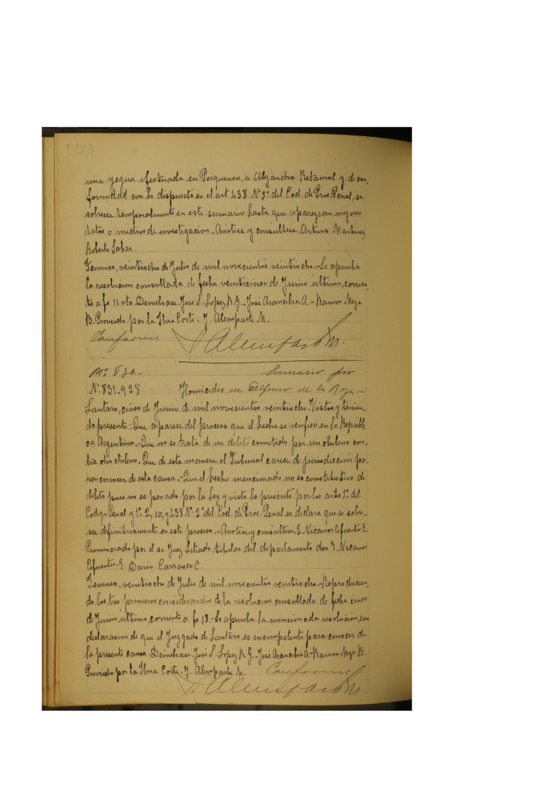 una yegua efectuada en Perquenco, a Alejandro Retamal y de con
formidad con lo dispuesto en el art 438 Nº 2º del Cod. de Proc Penal, se
sobresee temporalmente en este sumario hasta que aparezcan mejores
datos o medios de investigacion. Anotese y consultese. Arturo Martinez
Roberto
Temuco, veintiocho de Julio de mil novecientos veintiocho.- Se aprueba
la resolucion consultada de fecha veintiseis de Junio ultimo, corrien
te a fs 11 vta Devuelvase José S. Lopez R. G.- José Arancibia A.- Ramon Meza
B. Proveido por la Iltma Corte. J. Alemparte M.
Conforme
J Alemparte M.
Nº 832.- Sumario por
Nº 831-928 Homicidio de Alfonso de la Roza.-
Lautaro, cinco de Junio de mil novecientos veintiocho. Vistos y tenien
do presente: Que aparece del proceso que el hecho se verificó en la Republi
ca Argentina.- Que no se trata de un delito cometido por un chileno con
tra otro chileno. Que de esta manera el Tribunal carece de jurisdiccion pa
ra conocer de esta causa.- Que el hecho mencionado no es constitutivo de
delito pues no es penado por la Ley y visto lo prescrito por los arts 1º del
Codigo Penal y 1º, 2, 10, y 438 Nº 2º del Cod. de Proc. Penal se declara que se sobre
see definitivamente en este proceso.- Anotese y consultese E. Nicanor Cifuentes G.
Pronunciado por el sr Juez Letrado titular del departamento don E. Nicanor
Cifuentes G. Dario Carrasco C.
Temuco, veintiocho de Julio de mil novecientos veintiocho.- Reproducien
do los tres primeros considerandos de la resolucion consultada de fecha cinco
de Junio ultimo, corriente a fs 13.- Se aprueba la mencionada resolucion con
declaracion de que el Juzgado de Lautaro es incompetente para conocer de
la presente causa. Devuelvase José S. Lopez R. G.- José Arancibia A.- Ramon Meza B.
Proveido por la Iltma Corte. J. Alemparte M. Conforme
J Alemparte M